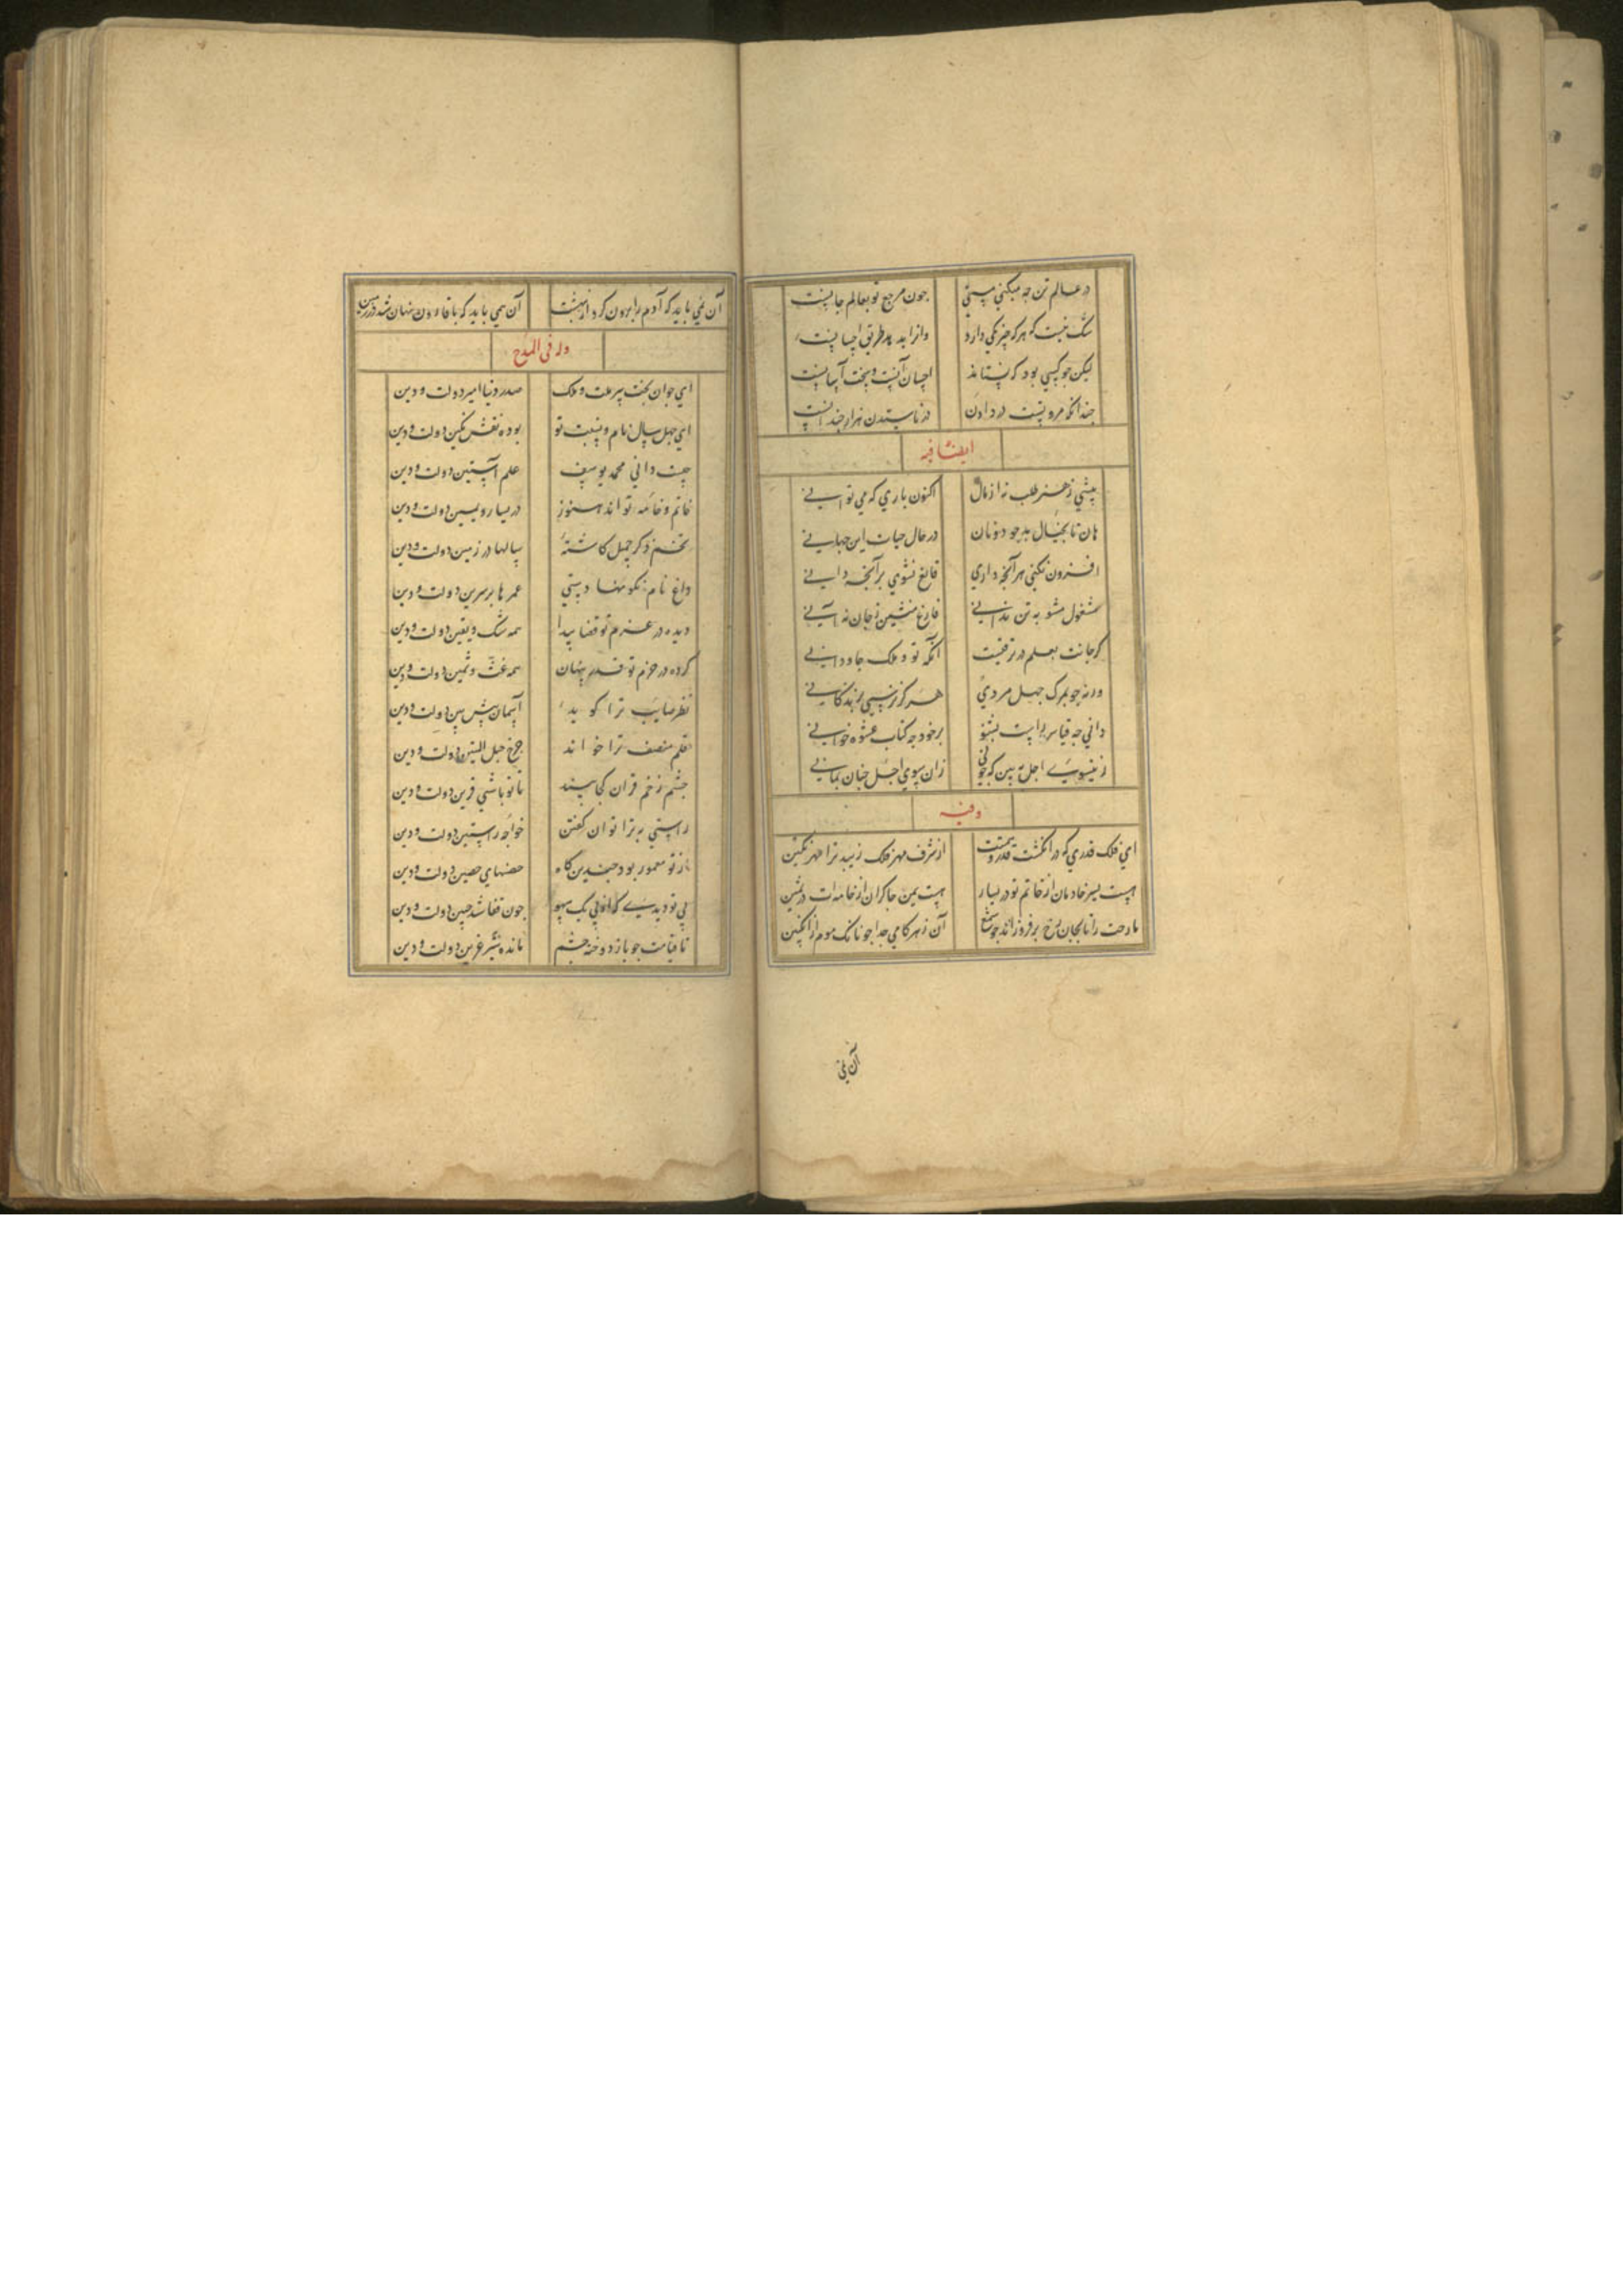 در عالم تن چه میکنی هستی چون مرجع تو بعالم جانست
شک نیست که هرکه چیزکی دارد وانرا بدهد طریق احسانست
لیکن چو کسی بود که نستاند احسان آنست و سخت آسانست
چندانکه مروتست در دادن در ناستدن هزار چندانست
ایضا فیه
بیشی ز هنر طلب نه از مال اکنون باری که می توانی
هان تا بخیال بد چو دونان در حال حیات این جهانی
افزون نکنی هر آنچه داری قانع نشوی بر آنچه دانی
مشغول مشو به تن نه اینی فارغ منشین ز جان نه آنی
گر جانت بعلم در ترقیست آنکه تو و ملک جاودانی
ورنه چو بمرگ جهل مردی هرگز نرسی بزندگانی
دانی چه قیاس راست بشنو برخود چه کتاب عشوه خوانی
زینسوی اجل ببین که چونی زان سوی اجل چنان بمانی
وفیه
ای فلک قدری که در انگشت قدر و همتت از شرف مهر فلک زیبد ترا مهر نگین
هست یسر خادمان از خاتم تو در یسار هست یمن چاکران از خامه ات در یمین
مادحت را تا بجان رخ برفروزاند چو شمع آن ز هر کامی جدا چونانک موم از انگبین
آن نمی
آن نمی باید که آدم را برون کرد از بهشت آن همی باید که با قارون نهان شد در زمین
وله فی المدح
ای جوان بخت پیر ملت و ملک صدر دنیا امیر دولت و دین
ای چهل سال نام و نسبت تو بوده نقش نگین دولت و دین
چیست دانی محمد یوسف علم آستین دولت و دین
خاتم و خامه تو اند هنوز در یسار و یمین دولت و دین
تخم ذکر جمیل کاشته سالها در زمین دولت و دین
داغ نام نکو نهادستی عمر ها بر سرین دولت و دین
دیده در عزم تو قضا پیدا همه شک و یقین دولت و دین
کرده در حزم تو قدر پنهان همه غث و ثمین دولت و دین
نظر صایب ترا گوید آسمان پیش بین دولت و دین
قلم منصف ترا خواند چرخ حبل المتین دولت و دین
چشم زخم قران کجا بیند تا تو باشی قرین دولت و دین
راستی به ترا توان گفتن خواجه راستین دولت و دین
از تو معمور بود چندین گاه حصنهای حصین دولت و دین
بی تو دیدی که از پی یک سهو چون قفا شد جبین دولت و دین
تا قیامت چو باز دوخته چشم مانده شیر عرین دولت و دین